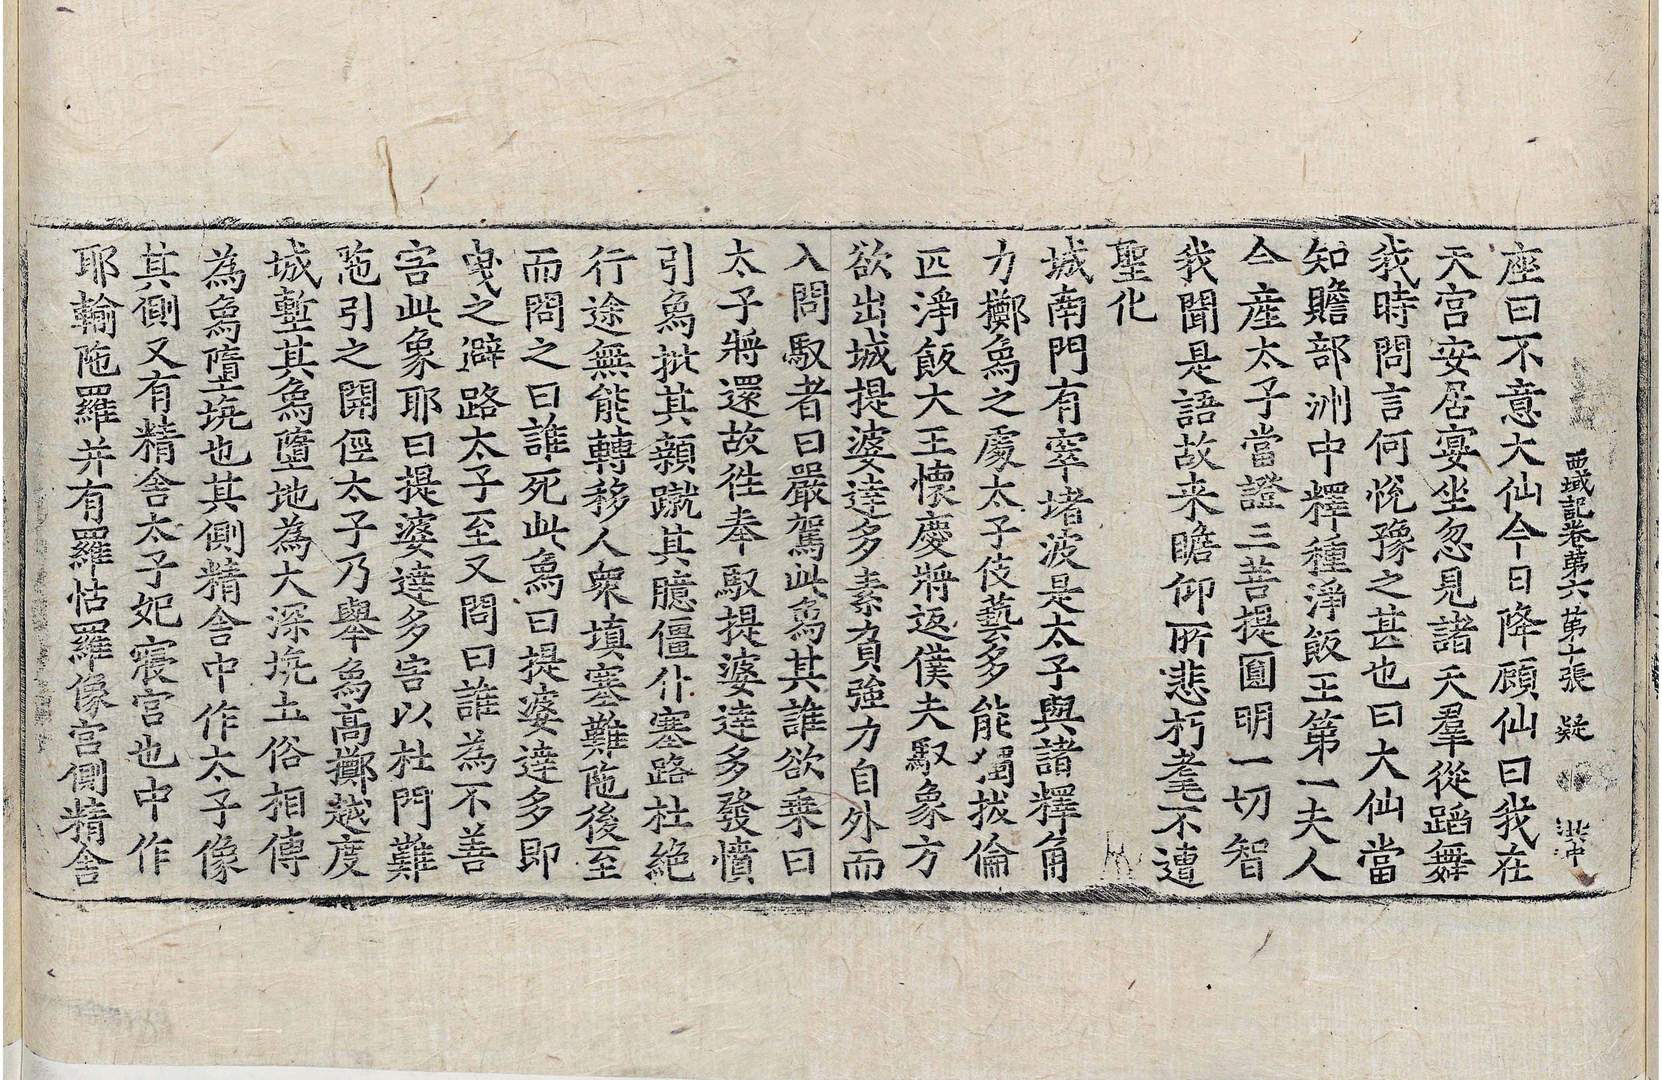 西域記卷第六 第十張 疑
座曰不意大仙今日降顧仙曰我在
天宮安居宴坐忽見諸天羣從蹈舞
我時問言何悅豫之甚也曰大仙當
知贍部洲中釋種淨飯王第一夫人
今產太子當證三菩提圓明一切智
我聞是語故来瞻仰所悲朽耄不遭
聖化
城南門有窣堵波是太子與諸釋角
力擲象之處太子伎藝多能獨拔倫
匹淨飯大王懷慶將返僕夫馭象方
欲出城提婆達多素負強力自外而
入問馭者曰嚴駕此象其誰欲乘曰
太子將還故徃奉馭提婆達多發憤
引象批其顙蹴其臆僵仆塞路杜絕
行途無能轉移人衆填塞難陁後至
而問之曰誰死此象曰提婆達多即
曳之避路太子至又問曰誰為不善
害此象耶曰提婆達多害以杜門難
陁引之開徑太子乃舉象高擲越度
城塹其象墮地為大深坑土俗相傳
為象墮坑也其側精舍中作太子像
其側又有精舍太子妃寢宮也中作
耶輸陁羅并有羅怙羅像宮側精舍